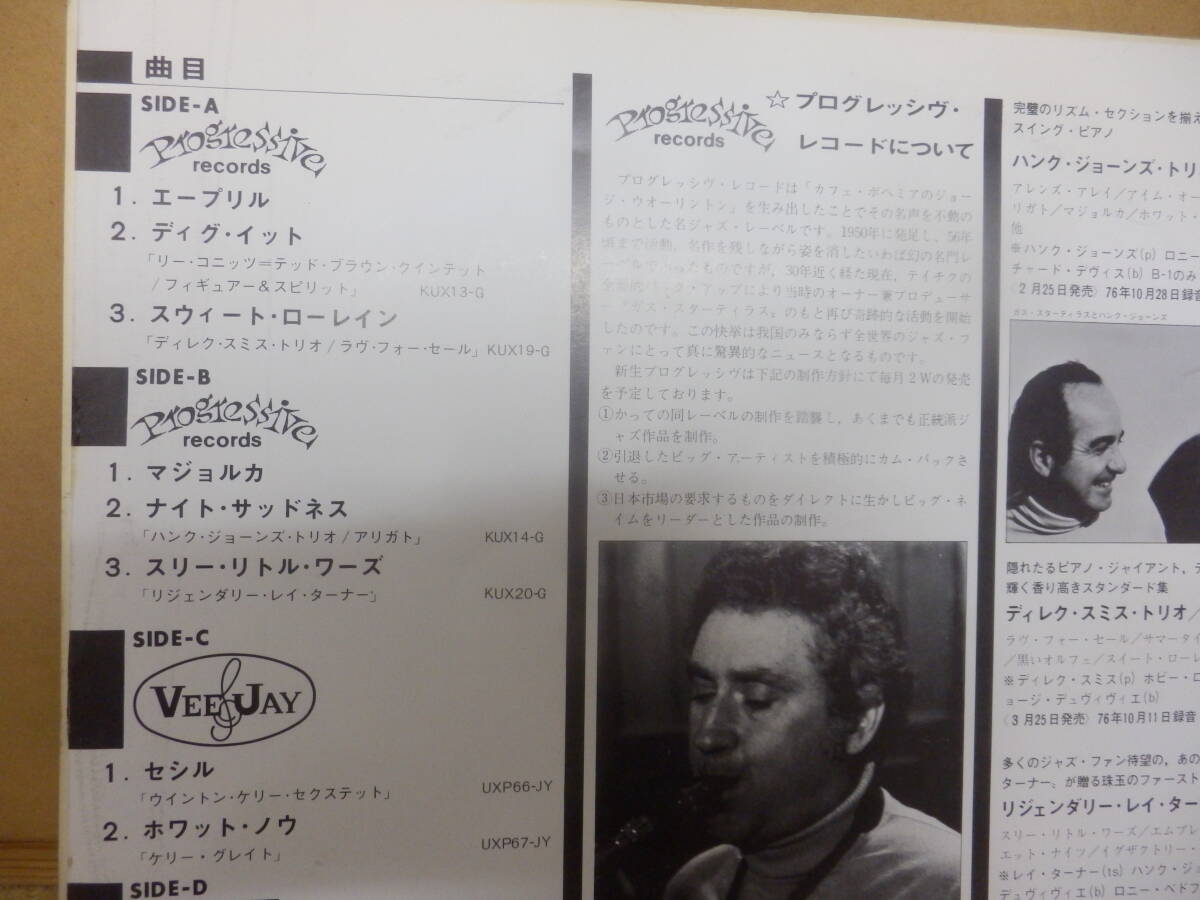 曲目
SIDE-A
Progressive
records
1. エープリル
2. ディグ・イット
「リー・コニッツ=テッド・ブラウン・クインテット
/フィギュアー&スピリット」 KUX13-G
3. スウィート・ローレイン
「ディレク・スミス・トリオ/ラヴ・フォー・セール」KUX19-G
SIDE-B
Progressive
records
1. マジョルカ
2. ナイト・サッドネス
「ハンク・ジョーンズ・トリオ/アリガト」 KUX14-G
3. スリー・リトル・ワーズ
「リジェンダリー・レイ・ターナー」 KUX20-G
SIDE-C
VEE JAY
1. セシル
「ウイントン・ケリー・セクステット」 UXP66-JY
2. ホワット・ノウ
「ケリー・グレイト」 UXP67-JY
SIDE-D
Progressive
records
☆プログレッシヴ・
レコードについて
プログレッシヴ・レコードは「カフェ・ボヘミアのジョー
ジ・ウオーリントン」を生み出したことでその名声を不動の
ものとした名ジャズ・レーベルです。1950年に発足し、56年
頃まで活動、名作を残しながら姿を消したいわば幻の名門レ
ーベルであったものですが、30年近く経た現在、テイチクの
全面的バック・アップにより当時のオーナー兼プロデューサ
"ガス・スターティラス"のもと再び奇跡的な活動を開始
したのです。この快挙は我国のみならず全世界のジャズ・フ
ァンにとって真に驚異的なニュースとなるものです。
新生プログレッシヴは下記の制作方針にて毎月2Wの発売
を予定しております。
①かっての同レーベルの制作を踏襲し、あくまでも正統派ジ
ャズ作品を制作。
②引退したビッグ・アーティストを積極的にカム・バックさ
せる。
③日本市場の要求するものをダイレクトに生かしビッグ・ネ
イムをリーダーとした作品の制作。
完璧のリズム・セクションを揃え
スイング・ピアノ
ハンク・ジョーンズ・トリ
アレンズ・アレイ/アイム・オー
リガト/マジョルカ/ホワット・
他
※ハンク・ジョーンズ(p) ロニー
チャード・デヴィス(b) B-1のみ
〈2月25日発売〉76年10月28日録音
ガス・スターティラスとハンク・ジョーンズ
隠れたるピアノ・ジャイアント,デ
輝く香り高きスタンダード集
ディレク・スミス・トリオ/
ラヴ・フォー・セール/サマータイ
/黒いオルフェ/スイート・ローレ
※ディレク・スミス(p) ホビー・ロ
ョージ・デュヴィヴィエ(b)
〈3月25日発売〉76年10月11日録音
多くのジャズ・ファン待望の,あの
ターナー〟が贈る珠玉のファースト
リジェンダリー・レイ・ター
スリー・リトル・ワーズ/エムブレ
エット・ナイツ/イグザクトリー・
※レイ・ターナー(ts) ハンク・ジョ
デュヴィヴィエ(b) ロニー・ベドフ